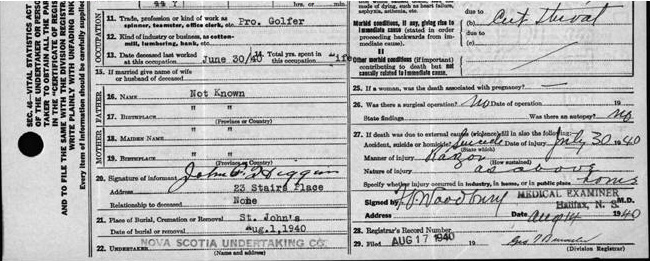 SEC. 48—VITAL STATISTICS ACT
OF THE UNDERTAKER OR PERSO
TAKER TO OBTAIN ALL THE FACT
IN THE "CERTIFICATE OF REGIS
AND TO FILE THE SAME WITH THE DIVISION REGISTRAR
WRITE PLAINLY WITH UNFADING INK
Every item of information should be carefully supplied
OCCUPATION
11. Trade, profession or kind of work as
spinner, teamster, office clerk, etc.
Pro. Golfer
12. Kind of industry or business, as cotton-
mill, lumbering, bank, etc.
13. Date deceased last worked
at this occupation
June 30/40
14. Total yrs. spent in
this occupation
Life
15. If married give name of wife
or husband of deceased
FATHER
16. NAME
Not Known
17. BIRTHPLACE
(Province or Country)
MOTHER
18. MAIDEN NAME
19. BIRTHPLACE
(Province or Country)
20. Signature of informant
Address
23 Stairs Place
Relationship to deceased
None
21. Place of Burial, Cremation or Removal
St. John's
Date of burial or removal
Aug.1,1940
22. UNDERTAKER
NOVA SCOTIA UNDERTAKING CO.
(Name and address)
made of dying, such as heart failure,
asphyxia, asthenia, etc.
due to
Cut Throat
Morbid conditions, if any, giving rise to
immediate cause (stated in order
proceeding backwards from
immediate cause).
due to
II
Other morbid conditions (if important)
contributing to death but not
causally related to immediate cause.
25. If a woman, was the death associated with pregnancy?
26. Was there a surgical operation? No Date of operation 19
State findings Was there an autopsy? No
27. If death was due to external causes (violence) fill in also the following:
Accident, suicide or homicide? Suicide Date of injury July 30 1940
(State which)
Manner of injury Razor
(How sustained)
Nature of injury as above
Specify whether injury occurred in industry, in home, or in public place Home
Signed by Woodbury M.D.
MEDICAL EXAMINER
Halifax, N. S.
Address Date Aug 14 1940
28. Registrar's Record Number
29. Filed AUG 17 1940
(Division Registrar)